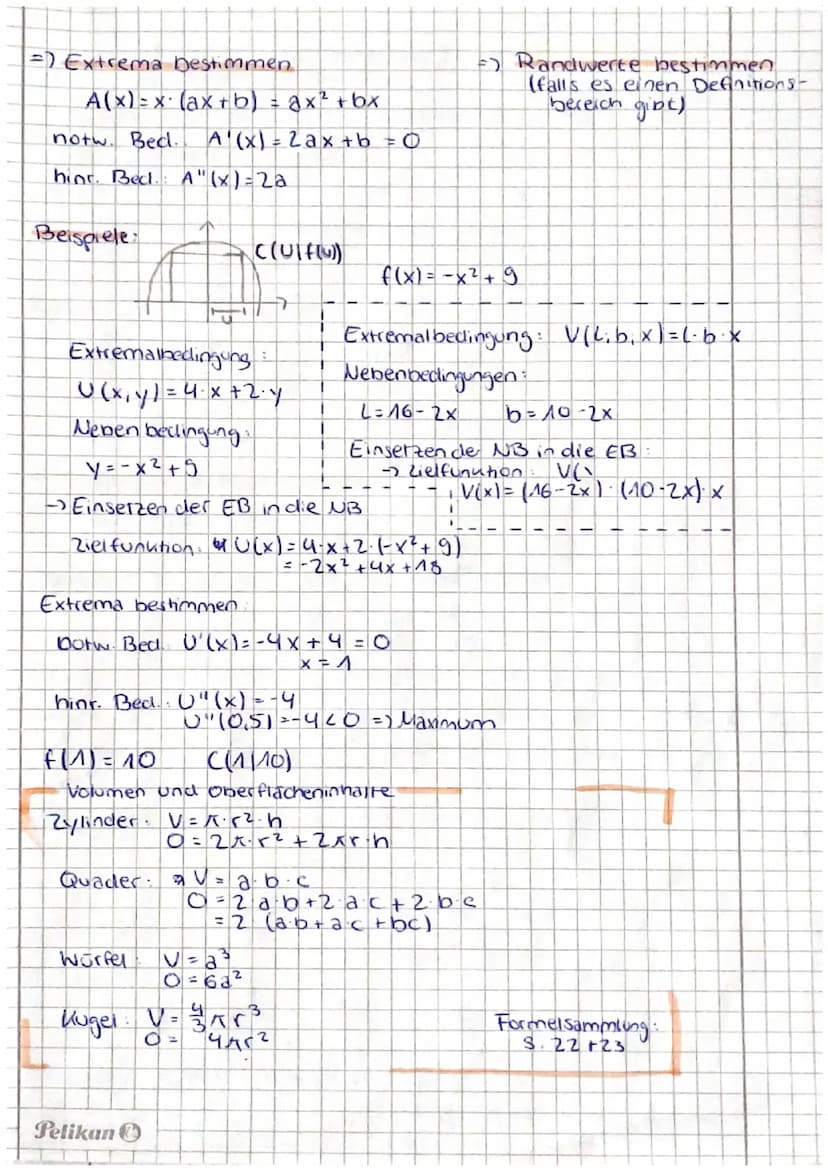 => Extrema bestimmen
A(x) = x· (ax+b) = ax² + bx
notw. Bed.: A'(x) = 2ax + b = 0
hinr. Bed.: A"(x) = 2a
=> Randwerte bestimmen
(falls es einen Definitions-
bereich gibt)
Beispiele:
C(u|f(u))
f(x) = -x² + 9
u
Extremalbedingung:
U(x,y) = 4·x + 2·y
Nebenbedingung:
y = -x² + 9
-> Einsetzen der EB in die NB
Extremalbedingung: V(L,b,x) = L·b·x
Nebenbedingungen:
L = 16 - 2x b = 10 - 2x
Einsetzen der NB in die EB:
-> Zielfunktion: V(
V(x) = (16-2x) · (10-2x) · x
Zielfunktion: U(x) = 4·x + 2·(-x² + 9)
= -2x² + 4x + 18
Extrema bestimmen:
notw. Bed. U'(x) = -4x + 4 = 0
x = 1
hinr. Bed.: U"(x) = -4
U"(0,5) = -4 < 0 => Maximum
f(1) = 10 C(1|10)
Volumen und Oberflächeninhalte
Zylinder: V = π·r²·h
O = 2π·r² + 2πr·h
Quader: V = a·b·c
O = 2·a·b + 2·a·c + 2·b·c
= 2·(a·b + a·c + bc)
Würfel: V = a³
O = 6a²
Kugel: V = 4/3 πr³
O = 4πr²
Formelsammlung:
S. 22 + 23
Pelikan